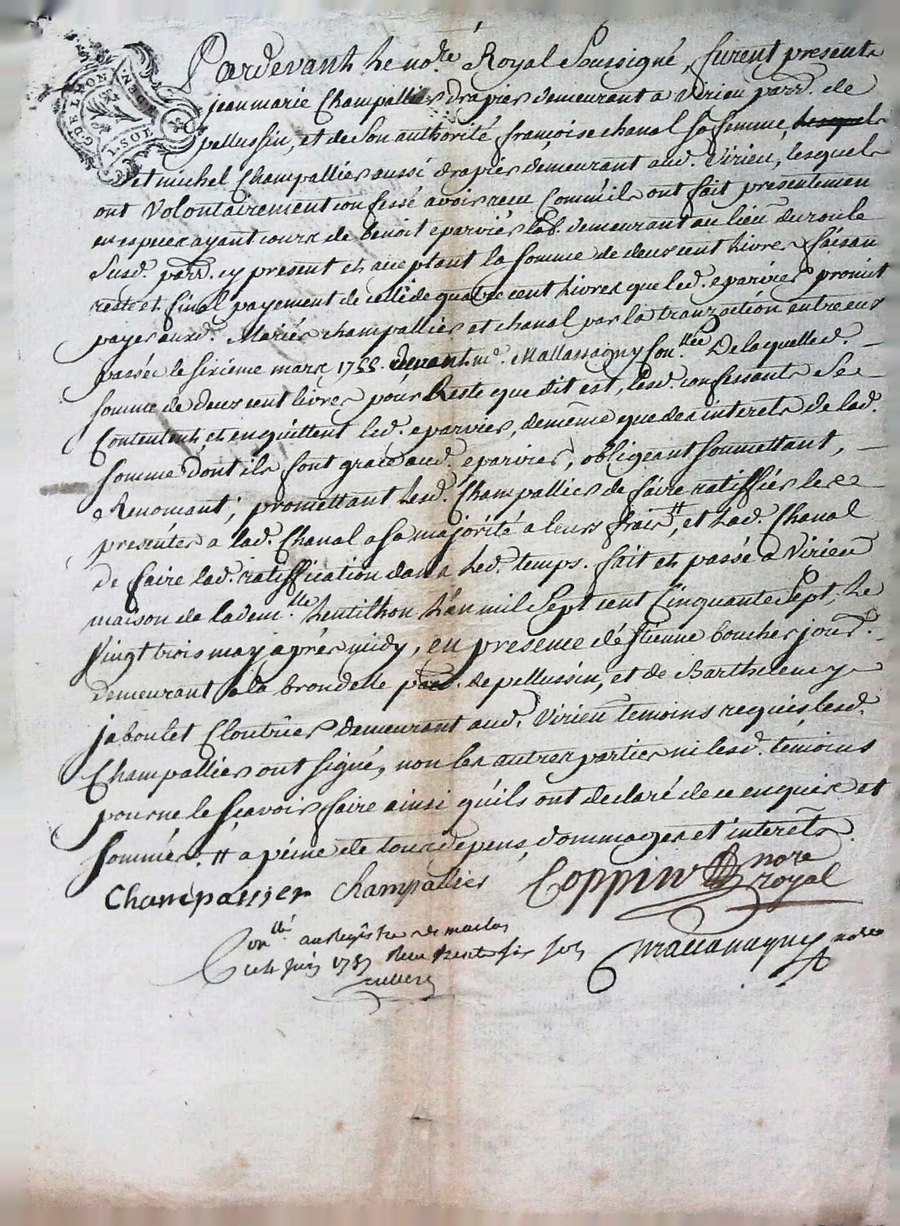 G. DE LYON
SOL
Pardevant le no.re Royal Soussigné, furent present
jean marie Champallier drapier demeurant a Virieu parr. de
pellussin, et de son authorité françoise chanal sa femme lesquels
et michel Champallier aussi drapier demeurant aud. Virieu, lesquels
ont Volontairement confessé avoir receu Comm'ils ont fait presentemen
en espece ayant cours de benoit eparvier lab. demeurant au lieu du roule
Susd. parr. cy present et acceptant la somme de deux cent livres faisan
reste et final payement de celle de quatre cent livres que led. eparvier promit
payer auxd. Mariés champallier et chanal par la tranzaction entre eux
passée le sixieme mars 1755 devant m.e Mallassagny De laquelle d.
somme de deux cent livres pour Reste que dit est, lesd. confessants Se
Contentent et en quittent led. eparvier, de meme que des interets de lad.
somme dont ils font grace aud. eparvier, obligeant soumettant,
Renoncant, promettant lesd. Champallier de faire ratiffier les
presentes a lad. Chanal a sa majorité a leurs frais #, et lad. Chanal
de faire lad. ratiffication dans led. temps. fait et passé a Virieu
maison de la dem.lle Lentilhon L'an mil Sept cent Cinquante Sept le
Vingt trois may après midy, en presence d'étienne boucher jour.
demeurant a la brondelle parr. de pellussin, et de Barthelemy
jaboulet Cloutrier demeurant aud. Virieu temoins requis lesd.
Champallier ont signé, non les autres parties ni lesd. témoins
pour ne le sçavoir faire ainsi qu'ils ont declaré de ce enquis et
sommés. # a péine de tous depens, dommages et interets.
Champallier champallier Coppin nore
royal
Con.llé au Registre des
ce 4 juin 1757 Receu sols
Mallassagny nore